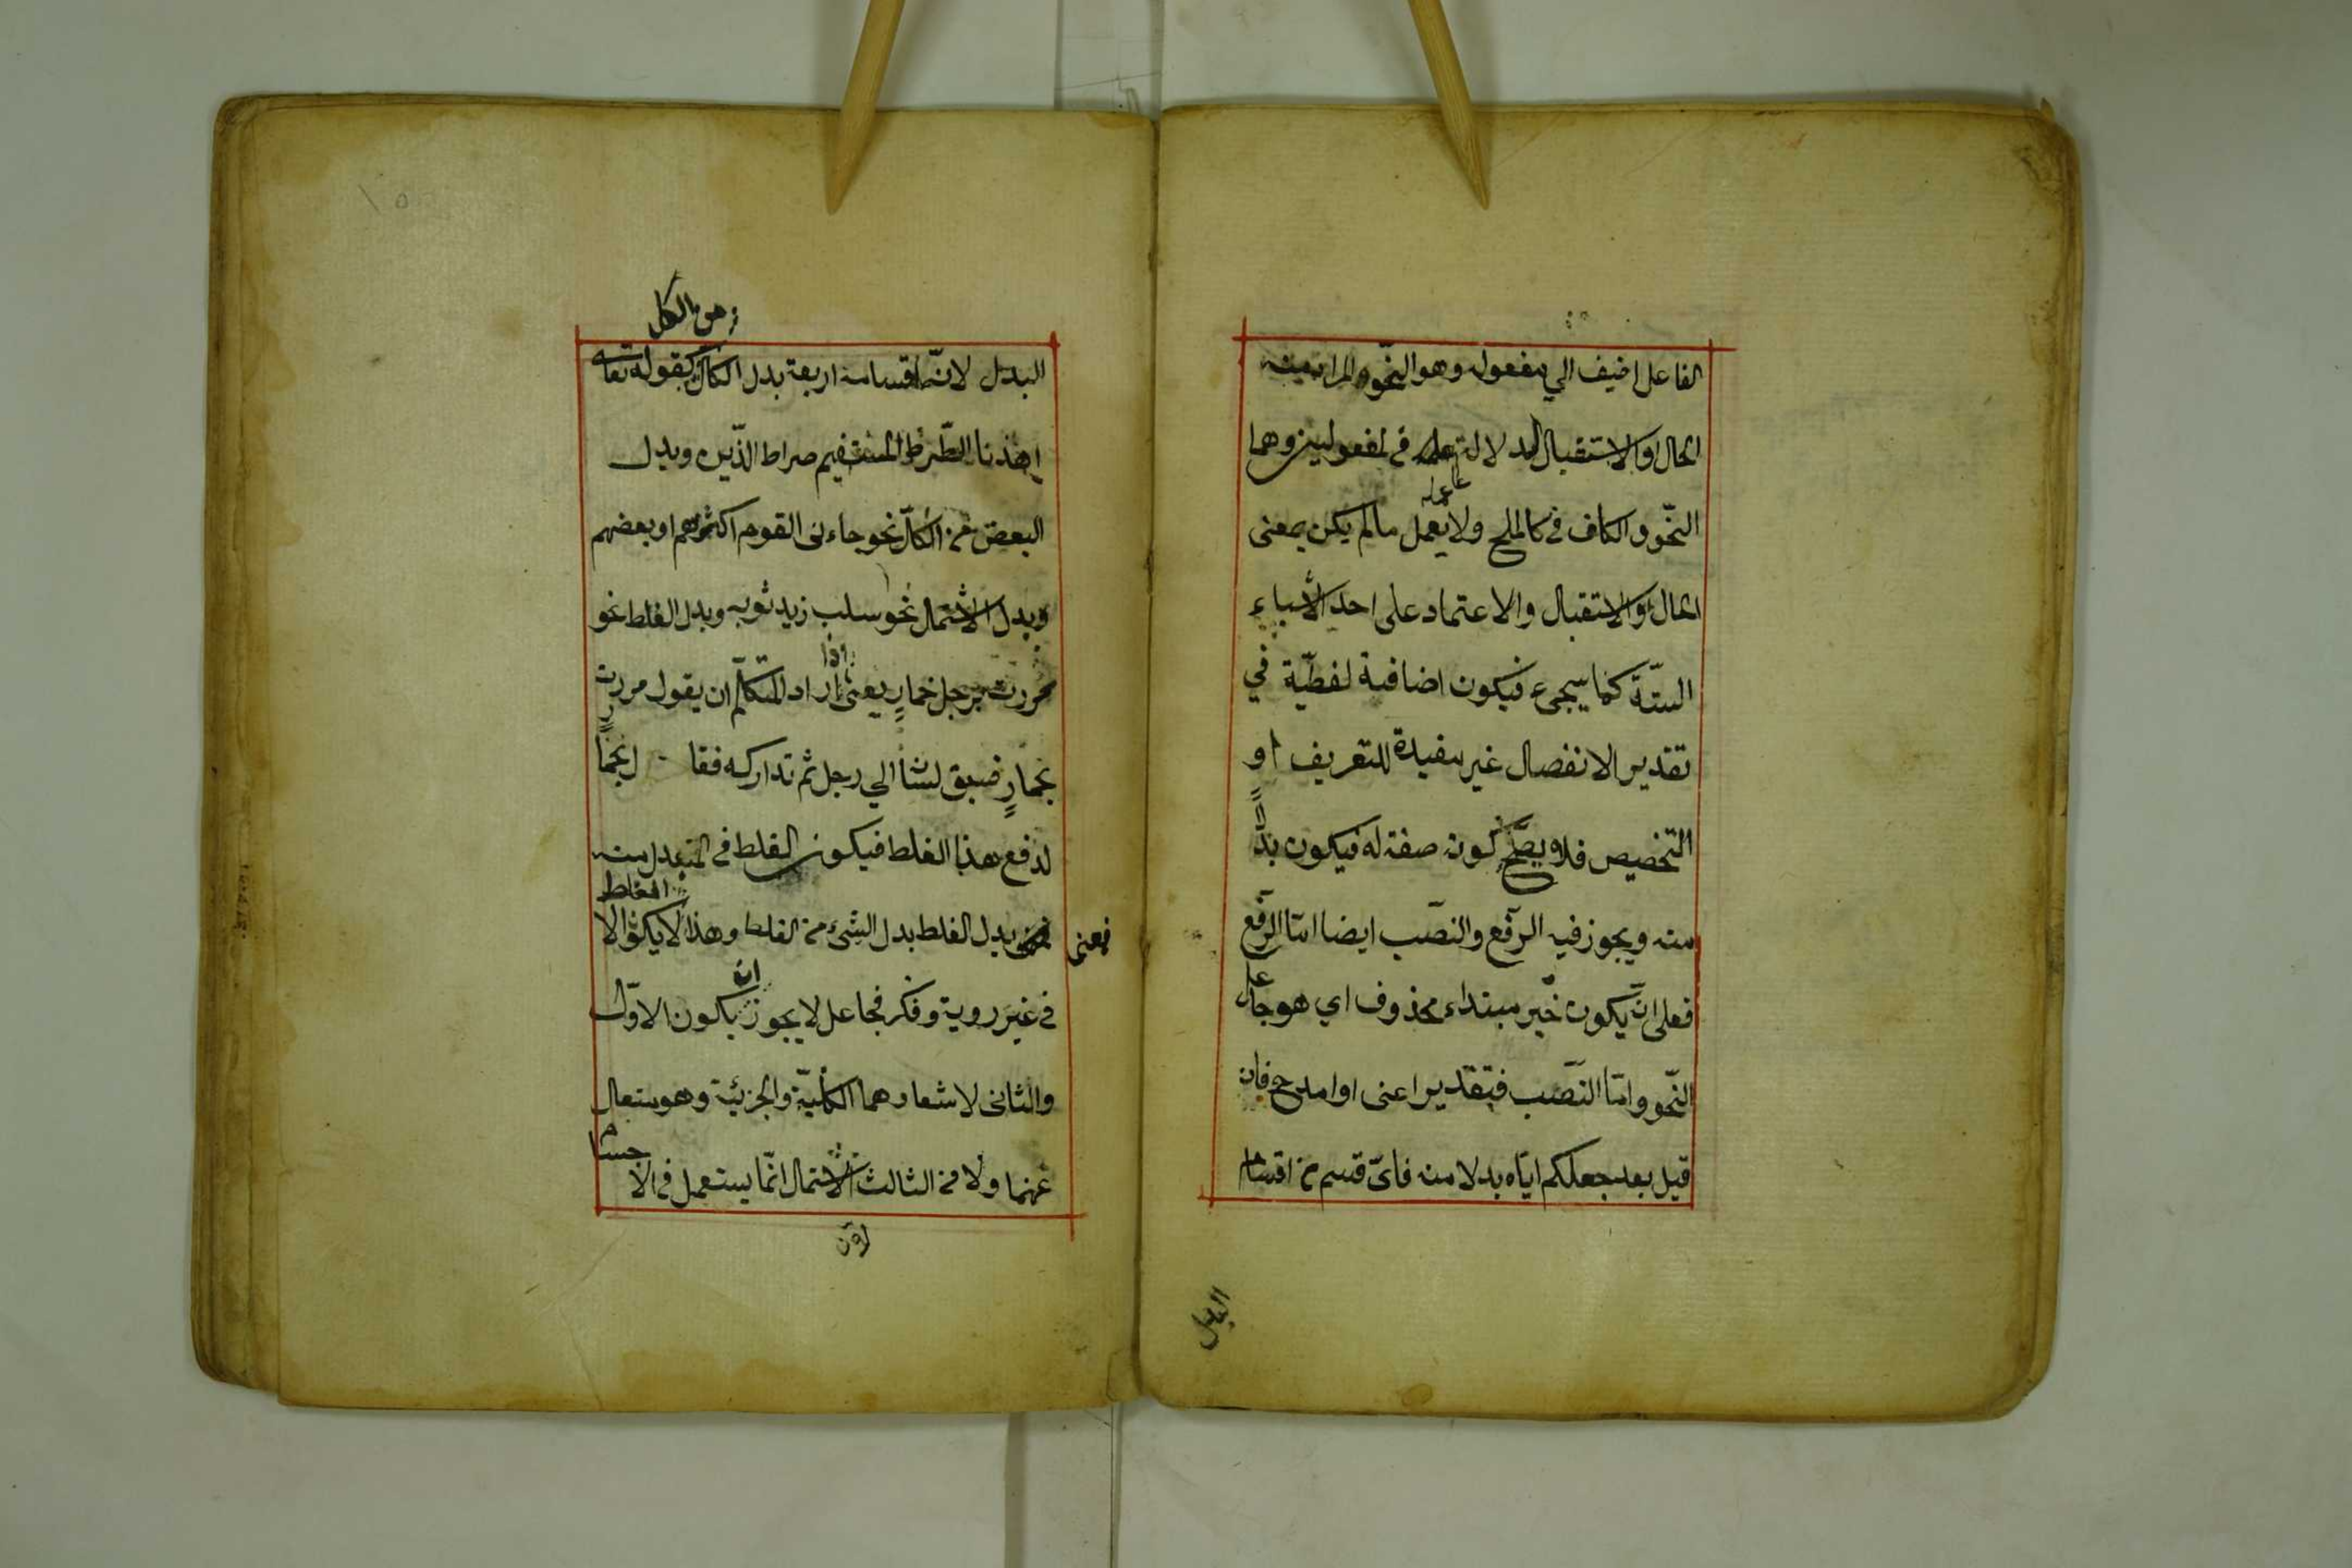 الفاعل اضيف الي مفعوله وهو النّحو والمراد منه
الحال او الاستقبال لدلالة عمله في المفعولين وهما
النّحو والكاف في كالملح ولا يعمل عمله مالم يكن بمعنى
الحال والاستقبال والاعتماد على احد الأشياء
الستّة كما سيجىء فيكون اضافية لفظيّة في
تقدير الانفصال غير مفيدة للتعريف او
التخصيص فلا يصحّ كونه صفة له فيكون بدلاً
منه ويجوز فيه الرّفع والنصب ايضا امّا الرّفع
فعلى ان يكون خبر مبتداء محذوف اي هو جاعل
النّحو وامّا النّصب فبتقدير اعنى او امدح فان
قيل بعد جعلكم ايّاه بدلا منه فاىّ قسم من اقسام
البدل
من الكل
البدل لانّ اقسامه اربعة بدل الكل كقوله تعالى
إهدنا الصّراط المستقيم صراط الذّين وبدل
البعض من الكلّ نحو جاءنى القوم اكثرهم او بعضهم
وبدل الاشتمال نحو سلب زيد ثوبه وبدل الغلط نحو
مررت برجل حمارٍ يعنى اذا اراد المتكلّم ان يقول مررت
بحمارٍ فسبق لسانه الي رجل ثم تداركه فقال بحمارٍ
لدفع هذا الغلط فيكون الغلط في المبدل منه
فمعنى بدل الغلط بدل الشىء من الغلط وهذا الغلط لا يكون الا
في غير روية وفكر فجاعل لا يجوز ان يكون الاوّل
والثانى لاشعارهما الكليّة والجزئية وهو متعال
عنهما ولا من الثالث لان الاشتمال انّما يستعمل في الاجسام